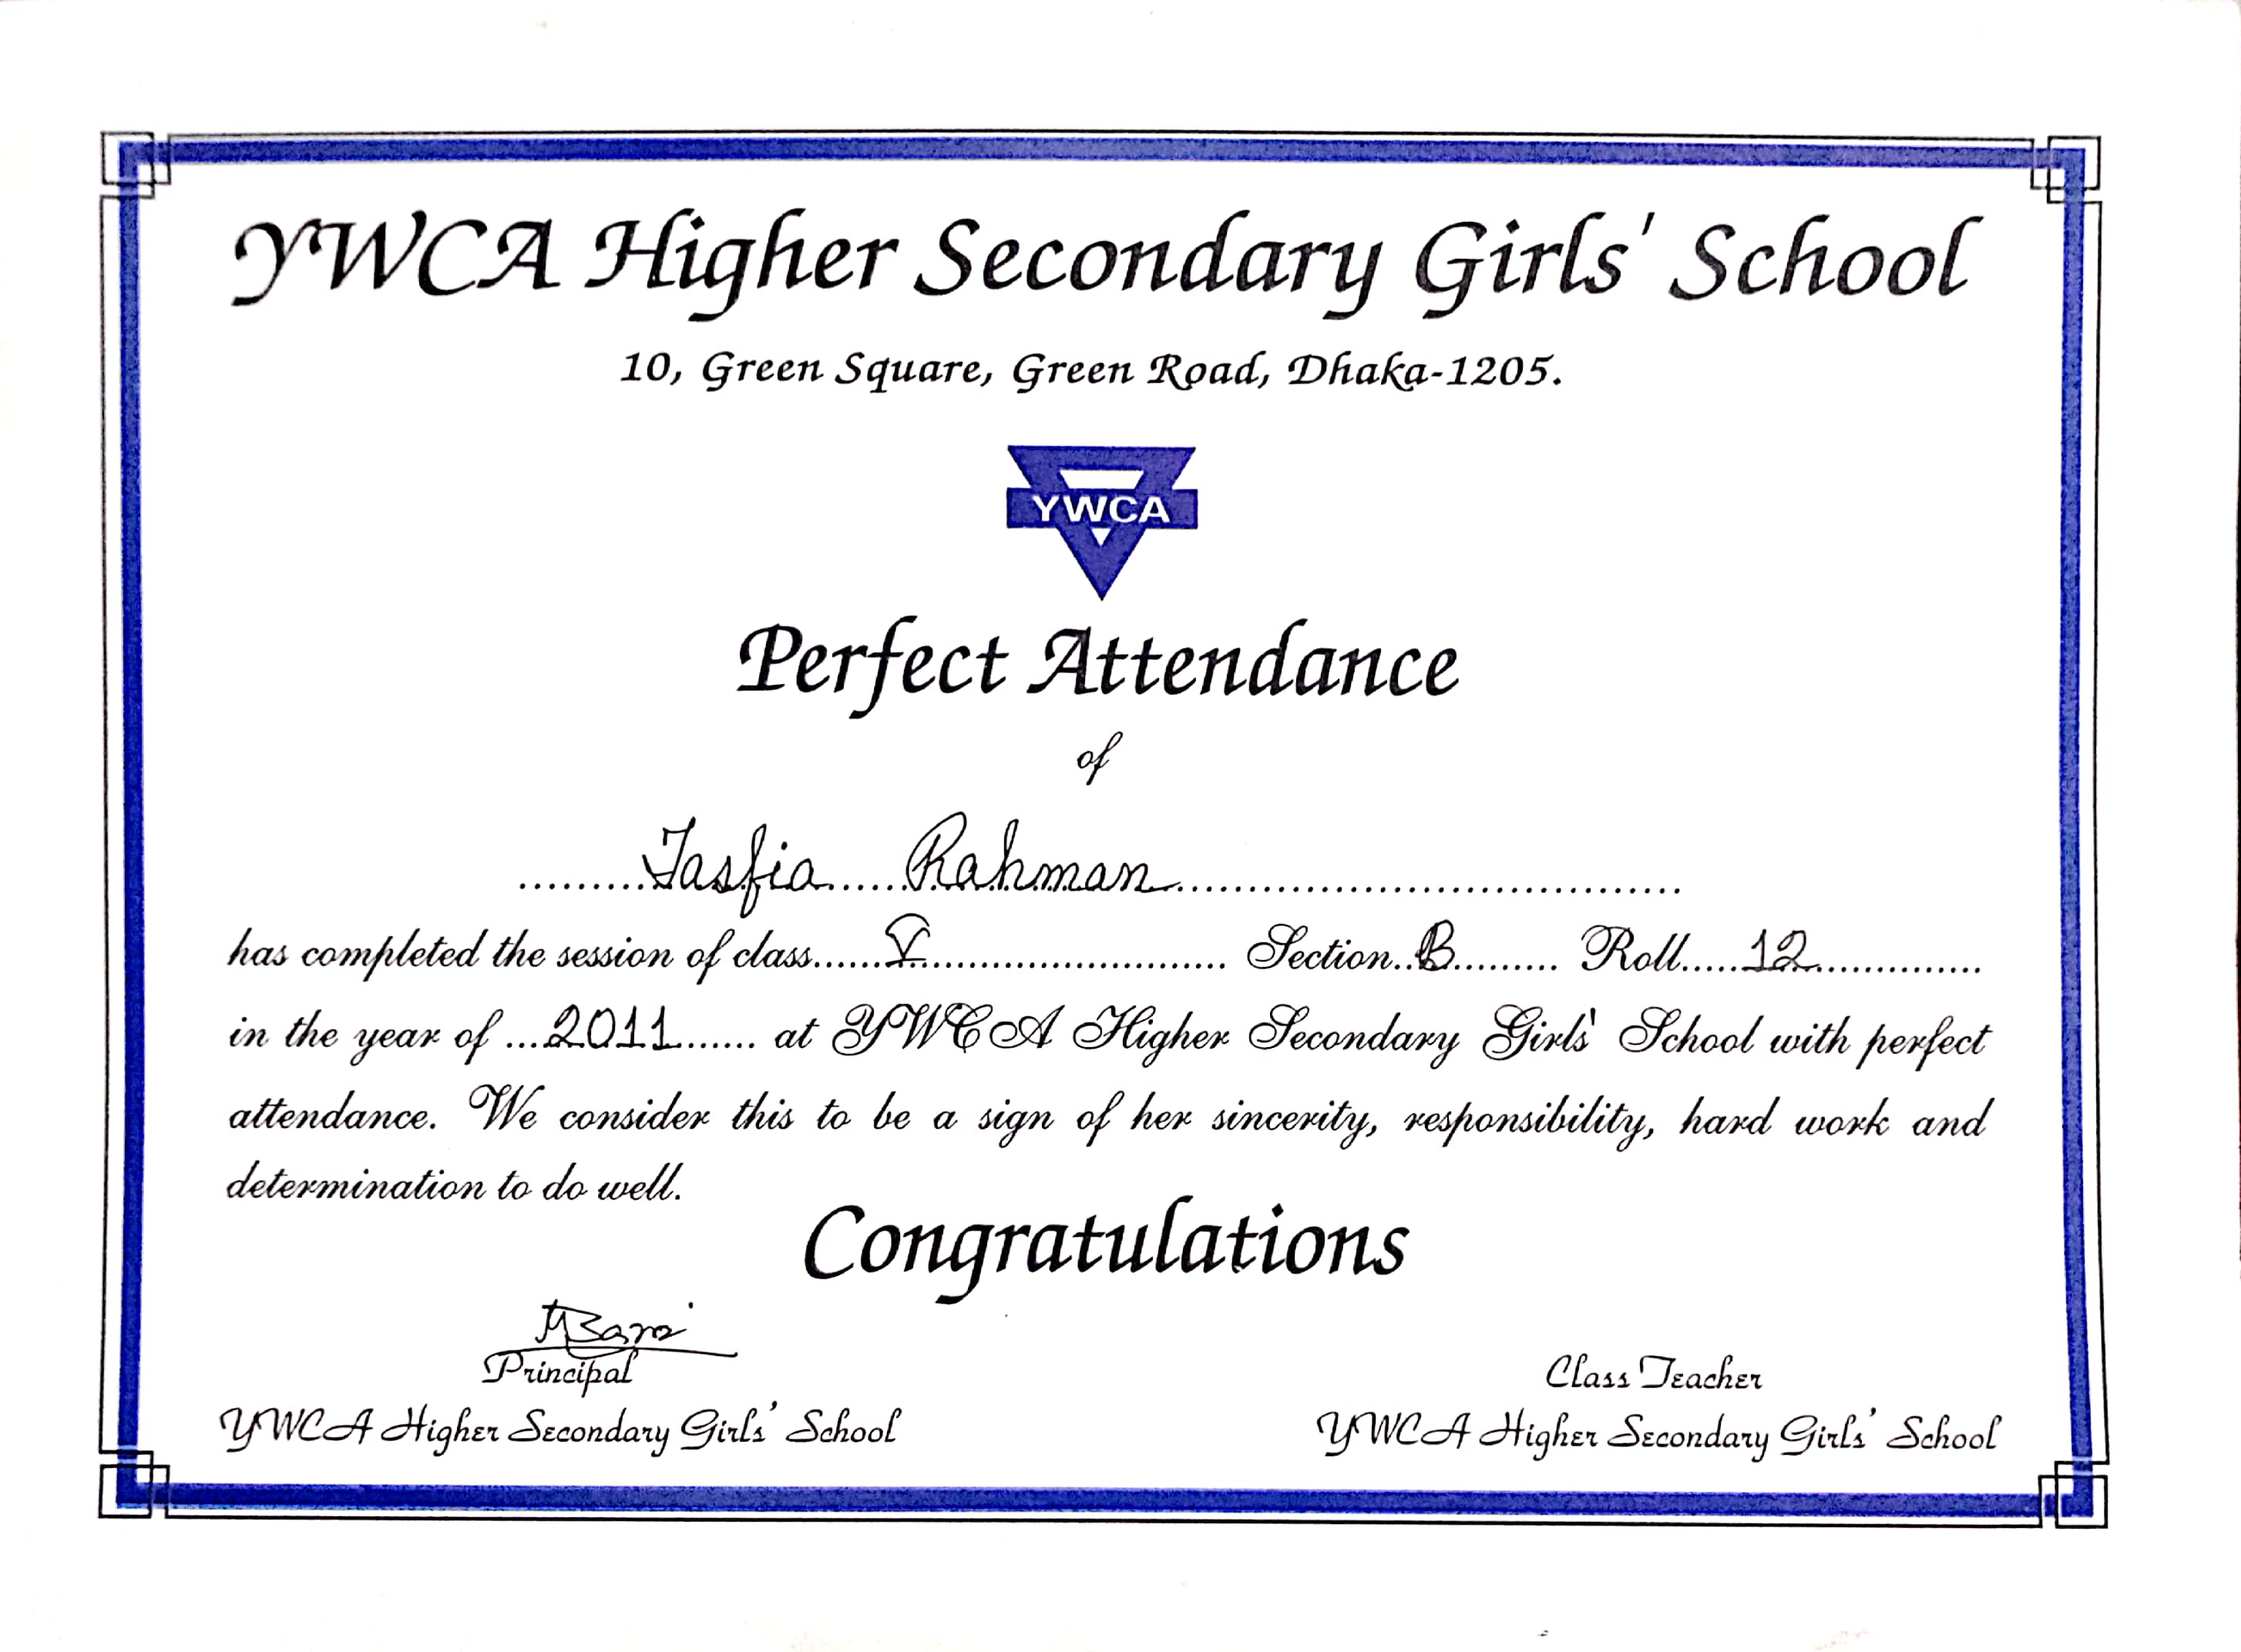 YWCA Higher Secondary Girls' School
10, Green Square, Green Road, Dhaka-1205.
YWCA
Perfect Attendance
of
.........Tasfia......Rahman....................................
has completed the session of class.......V............................ Section..B......... Roll......12...............
in the year of ...2011....... at YWCA Higher Secondary Girls' School with perfect
attendance. We consider this to be a sign of her sincerity, responsibility, hard work and
determination to do well.
Congratulations
Principal
YWCA Higher Secondary Girls' School
Class Teacher
YWCA Higher Secondary Girls' School